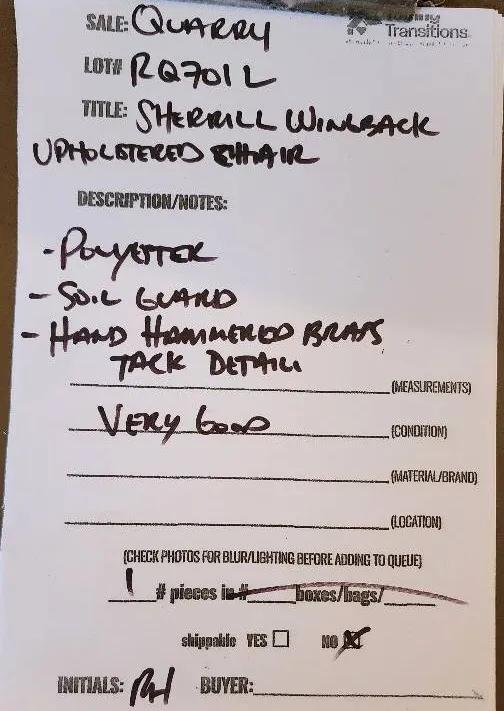 SALE: QUARRY
Transitions
LOT# RQ701L
TITLE: SHERRILL WINGBACK
UPHOLSTERED CHAIR
DESCRIPTION/NOTES:
- POLYESTER
- SOIL GUARD
- HAND HAMMERED BRASS
TACK DETAIL
(MEASUREMENTS)
VERY GOOD (CONDITION)
(MATERIAL/BRAND)
(LOCATION)
(CHECK PHOTOS FOR BLUR/LIGHTING BEFORE ADDING TO QUEUE)
1 # pieces in # boxes/bags/
shippable YES ☐ NO ☒
INITIALS: RH BUYER: